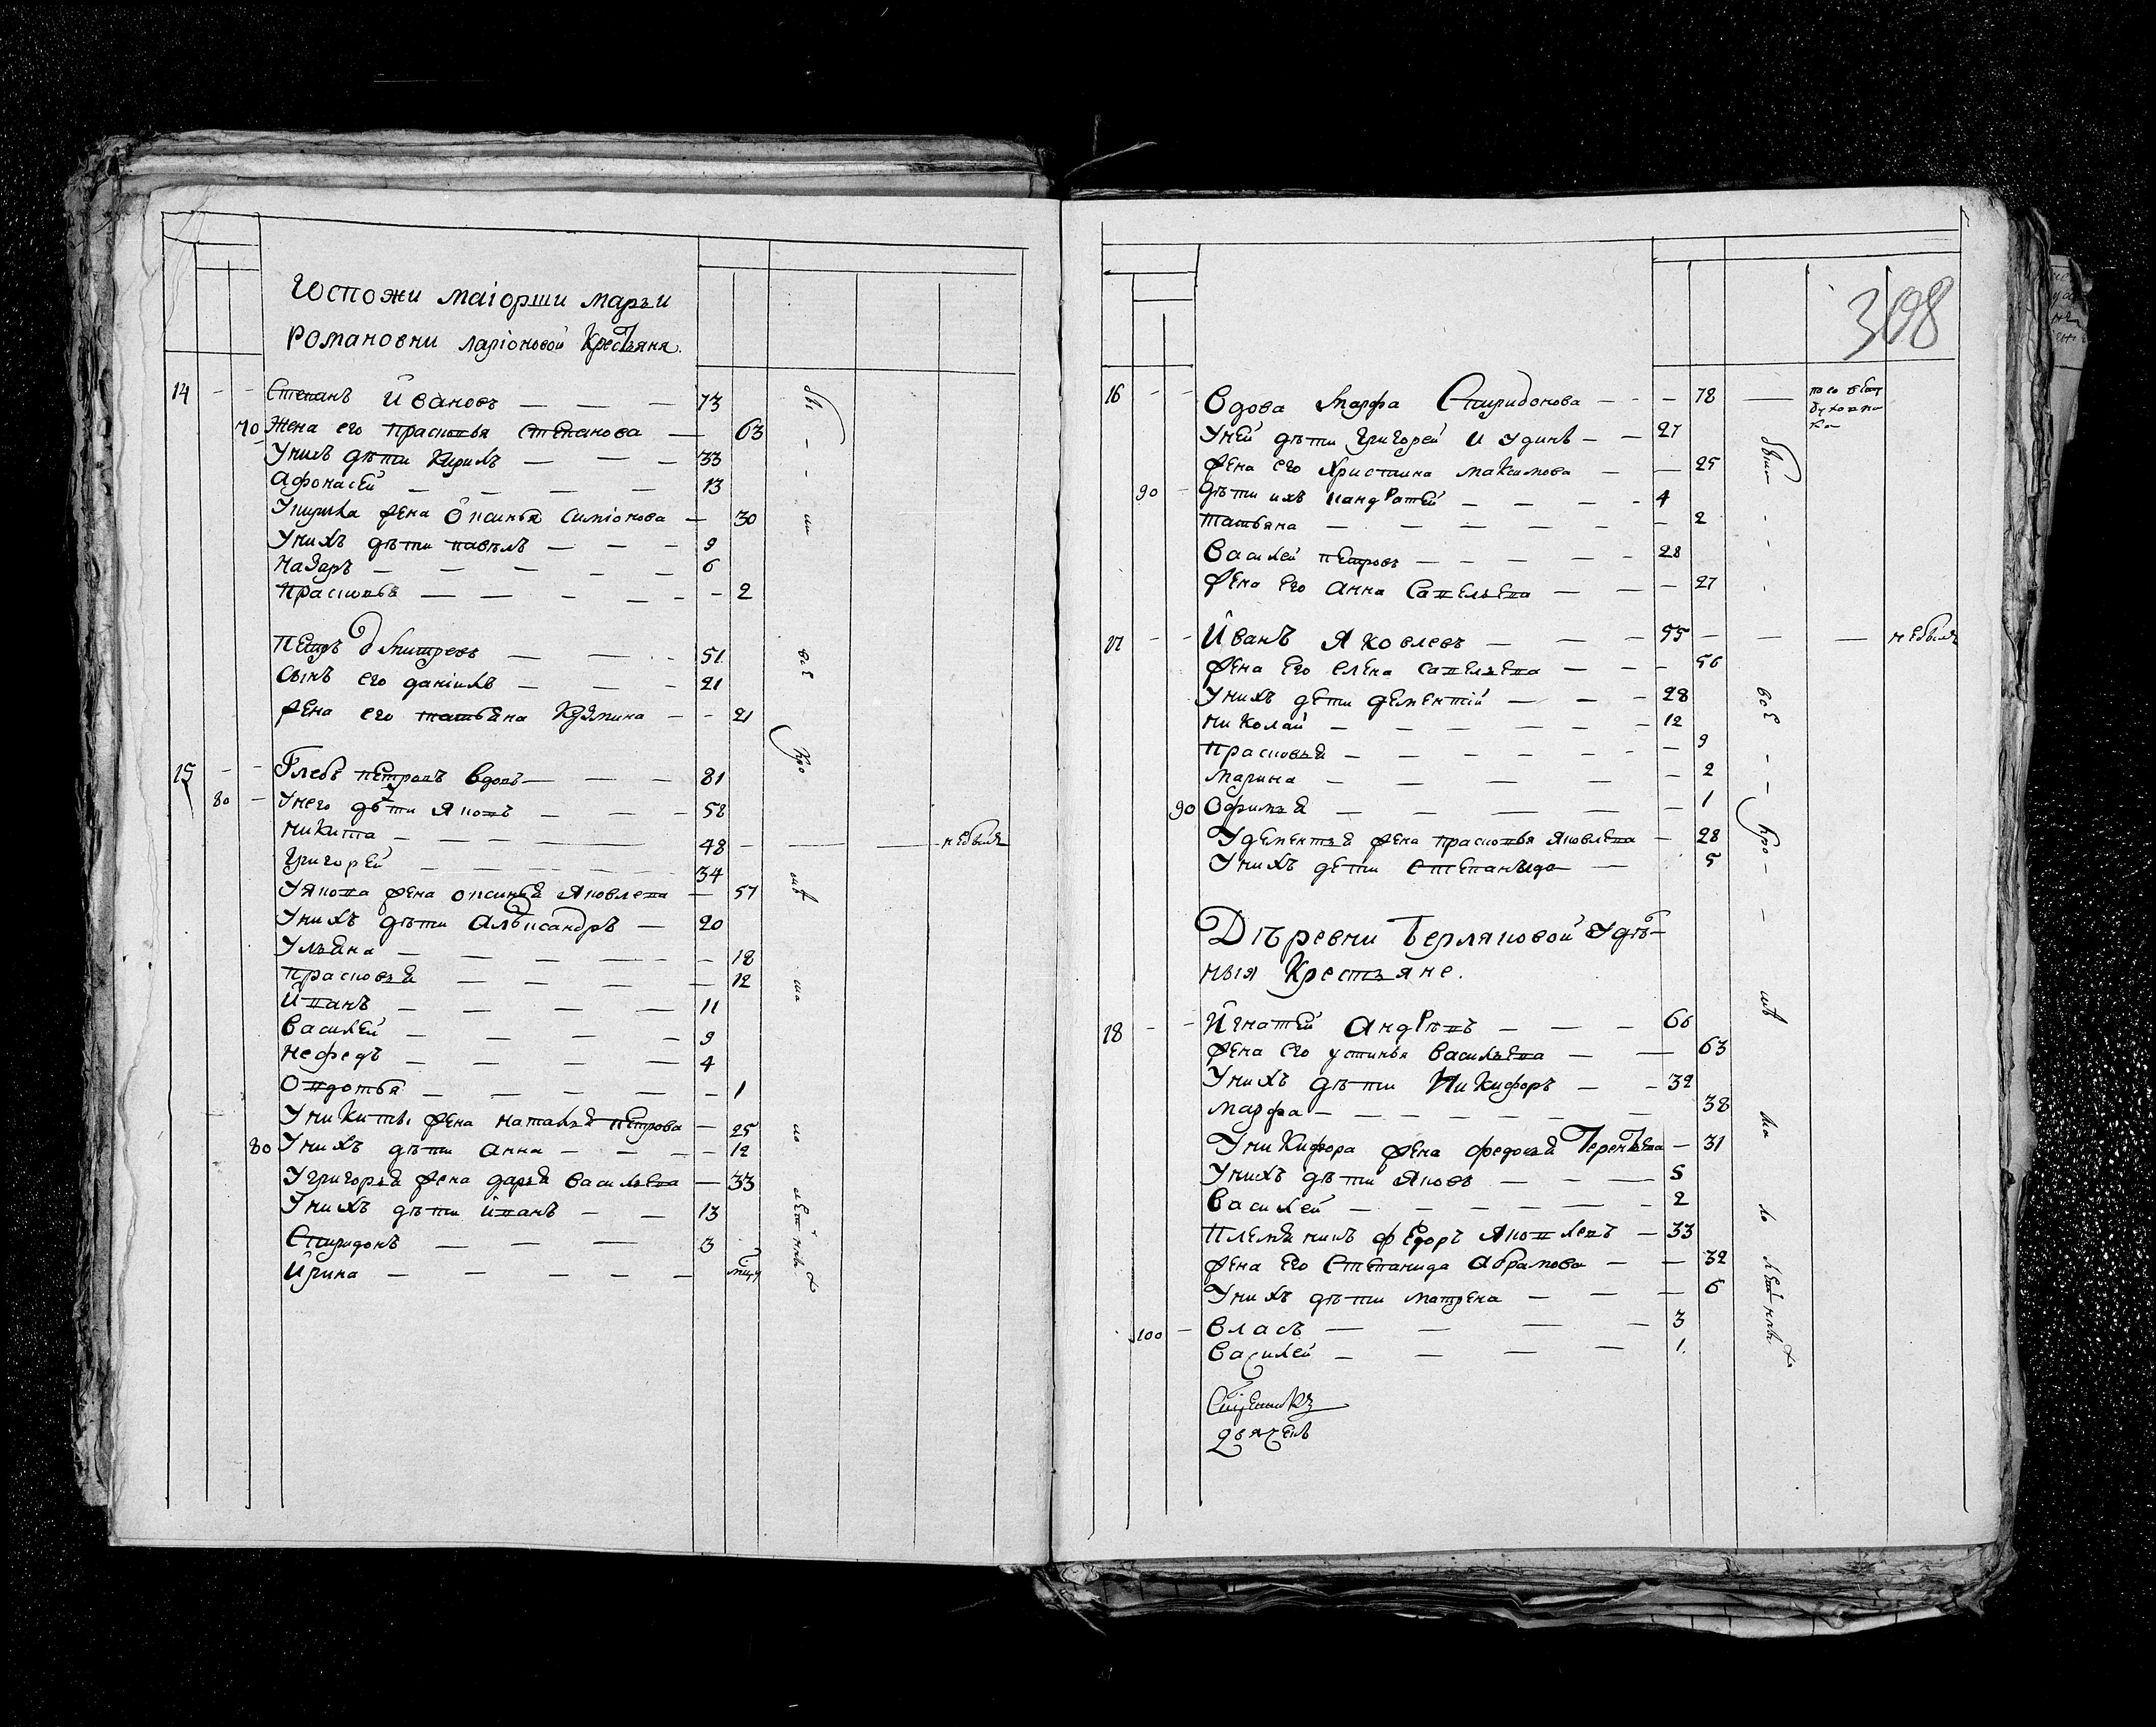 Госпожи маіорши марьи
Романовни ларіоновой Крестьяня.
14 - - Степанъ Ивановъ — — — 73
70 Жена его прасковья степанова — 63
У нихъ дѣти Кирилъ — — — 33
Афонасей — — — — 13
У кирила жена Оксинья симіонова — 30
У нихъ дѣти павелъ — — — 9
Назаръ — — — — — 6
Прасковья — — — — - - 2
Петръ Дмитревъ — — - 51
Сынъ его даніилъ — — — 21
жена его татьяна Кузмина - - 21
15 - - Глебъ петровъ вдовъ — — — 81
80 - У него дѣти Яковъ — — — 58
Никита — — — — — 48 - — — не былъ
Григорей — — — — — 34
У Якова жена оксинья Яковлева — 57
У нихъ дѣти Алѣксандръ — 20
Ульяна — — — — — - 18
прасковья — — — — — 12
Иванъ — — — — — 11
Василей — — — — 9
Нефедъ — — — — 4
Овдотья — — — — - 1
У Никиты жена наталья петрова — 25
80 У нихъ дѣти анна — - - - 12
У григорья жена дарья васильева — 33
У нихъ дѣти иванъ — — 13
Спиридонъ — — — 3
Ирина — — — — —
308
16 - - Вдова Марфа Спиридонова — - - — 78 —
У ней дѣти Григорей и удинъ — — 27
жена его Христина максимова — — 25
90 - Дѣти ихъ кандратей — — — - 4
Татьяна — — — — — - - 2
Василей петровъ — — — — - 28
жена его анна савельева — — — 27
17 - - Иванъ Яковлевъ — — — 55 — — — не былъ
жена его елена савельева — — - 56
У нихъ дети дементій — — - 28
Николай — — — — — - 12
Прасковья — — — — - - — 9
марина — — — — — 2
90 Офимья — — — — — 1
У дементья жена прасковья яковлева — 28
У нихъ дети степанида — 5
Дѣревни Берляковой удѣ-
ныя Крестьяне.
18 - - Игнатей андрѣевъ — — — 66
жена его устинья васильева — — 63
У нихъ дѣти Никифоръ — - 32
марфа — — — — — — — 38
У никифора жена федосья Терентьева — 31
У нихъ дѣти яковъ — - — 5
Василей — — — — — - 2
Племянникъ федоръ яковлевъ — 33
жена его степанида абрамова — — 32
У нихъ дѣти матрена — — — 6
100 - Власъ — — — — 3
Василей — — — — 1.